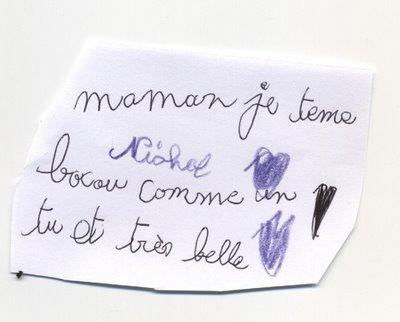 maman je teme
Nichol
bocou comme un
tu et très belle